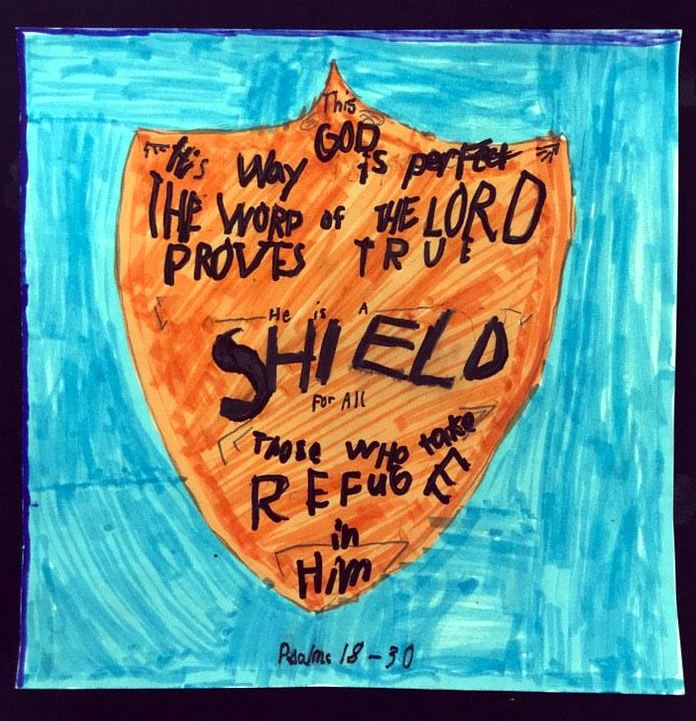 This
GOD
His Way is perfect
THE WORD of THE LORD
PROVES TRUE
He is A
SHIELD
For All
Those who take
REFuGE
in
Him
Psalms 18-30